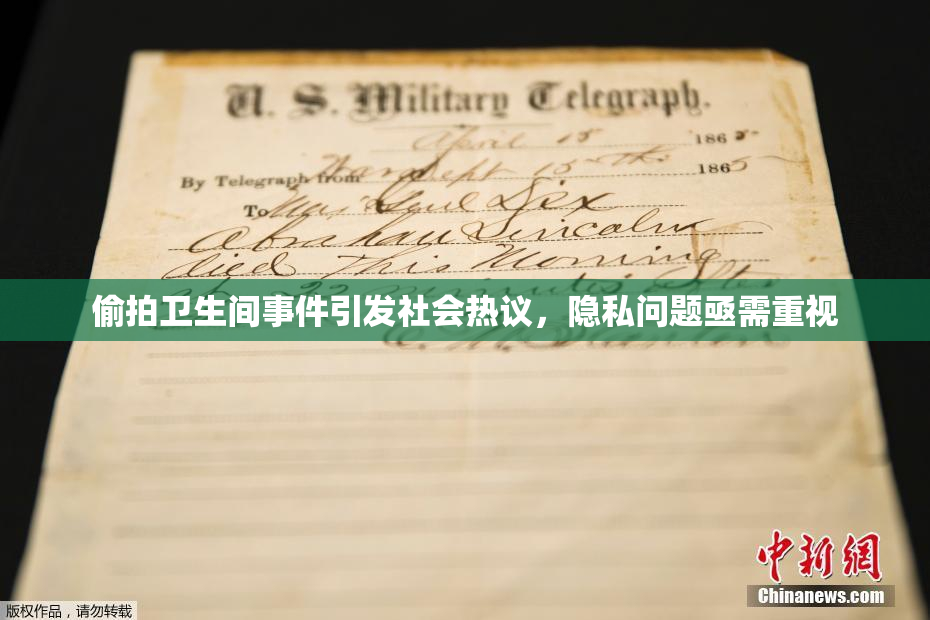 U. S. Military Telegraph.
April 15 1865
By Telegraph from War Dept 15th 1865
To Maj Genl Dix
Abraham Lincoln
died This Morning
22 minutes after
偷拍卫生间事件引发社会热议，隐私问题亟需重视
E. M. Stanton
中新网
Chinanews.com
版权作品，请勿转载